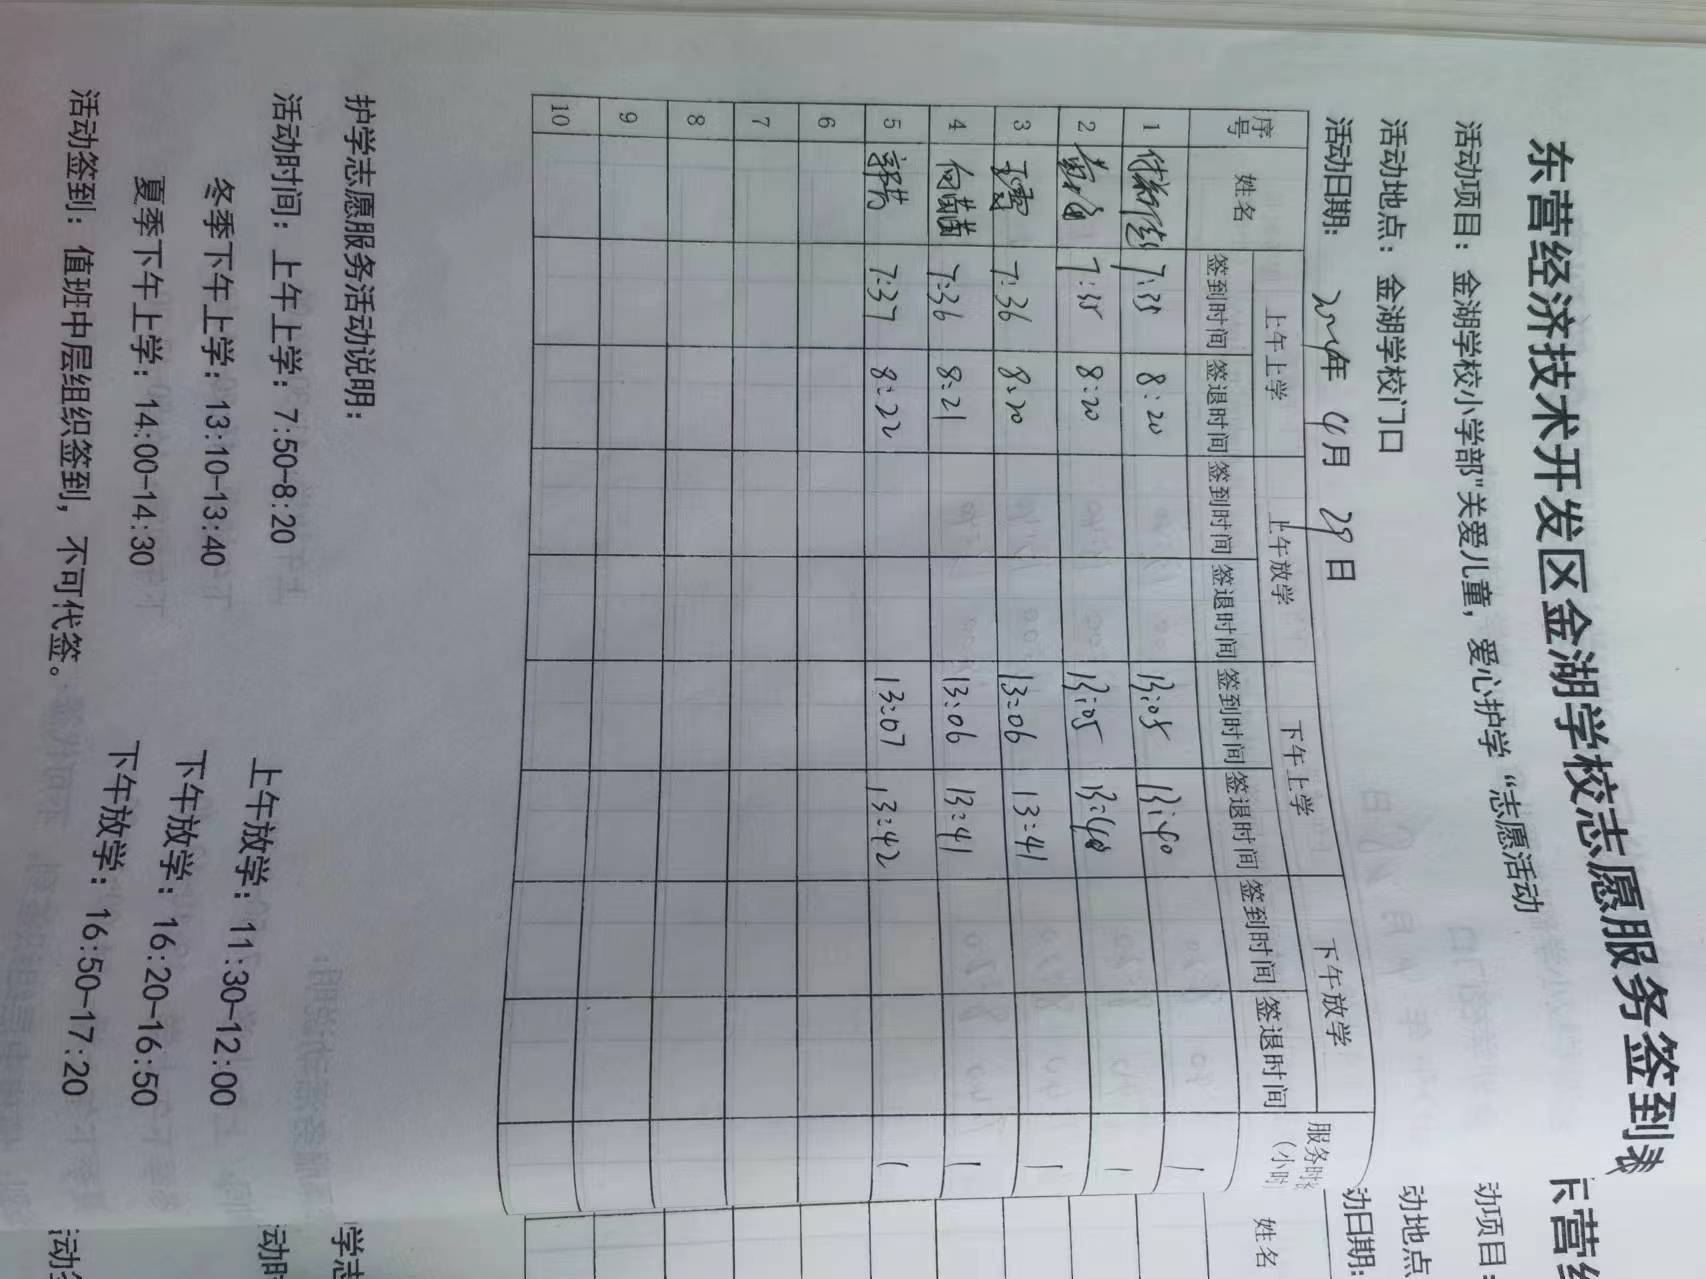 东营经济技术开发区金湖学校志愿服务签到表
活动项目：金湖学校小学部"关爱儿童，爱心护学“志愿活动
活动地点：金湖学校门口
活动日期： 2024年 4月 29日
序号 姓名 上午上学 上午放学 下午上学 下午放学 服务时 (小时
签到时间 签退时间 签到时间 签退时间 签到时间 签退时间 签到时间 签退时间
1 7:35 8:20 13:05 13:40 1
2 7:35 8:20 13:05 13:40 1
3 7:36 8:20 13:06 13:41 1
4 向茵茵 7:36 8:21 13:06 13:41 1
5 7:37 8:22 13:07 13:42 1
6
7
8
9
10
护学志愿服务活动说明：
活动时间：上午上学：7:50-8:20 上午放学：11:30-12:00
冬季下午上学：13:10-13:40 下午放学：16:20-16:50
夏季下午上学：14:00-14:30 下午放学：16:50-17:20
活动签到：值班中层组织签到，不可代签。
东营经
动项目：
动地点
动日期：
姓名
学志
活动时
活动签